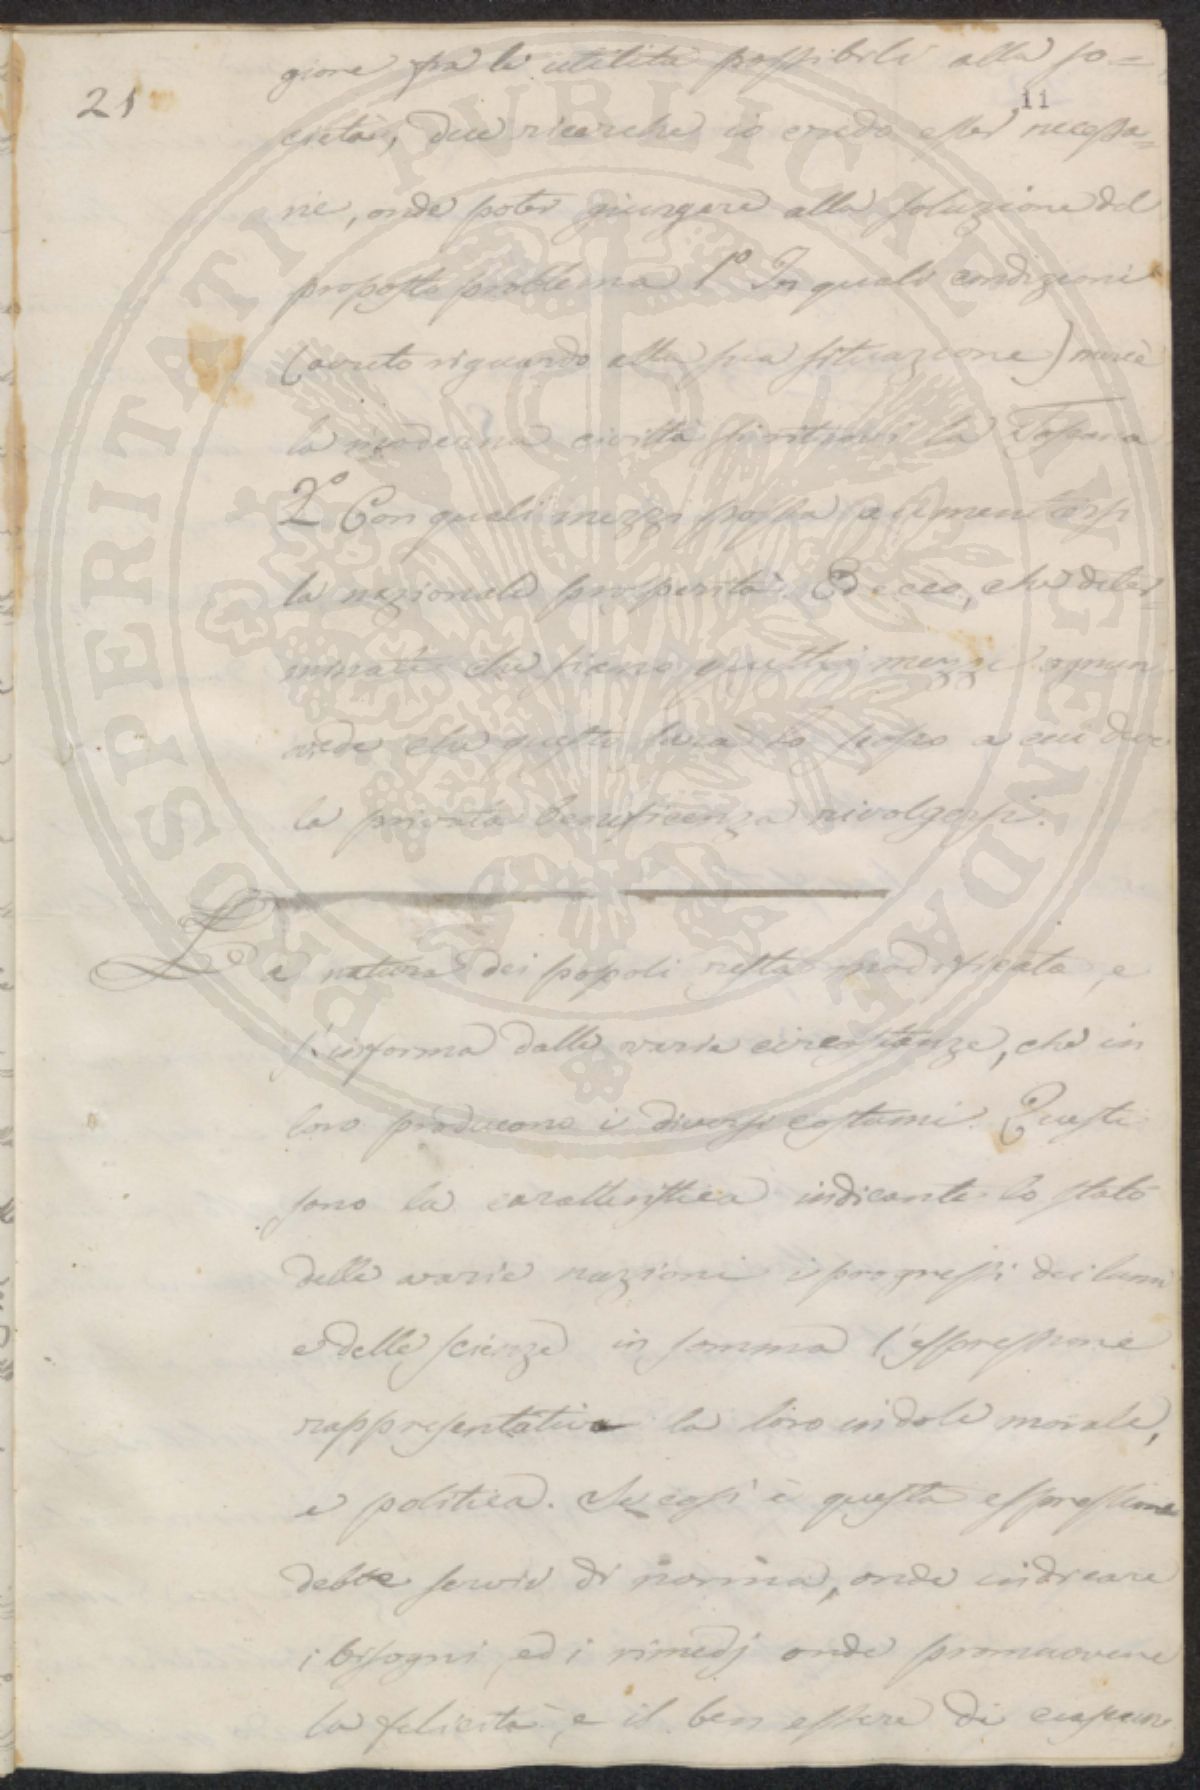 21
11
gione fra le utilità possibili alla so=
cietà, due ricerche io credo esser necessa=
rie, onde poter giungere alla soluzione del
proposto problema 1º In quali condizioni
(avuto riguardo alla sua situazione) mercè
la moderna civiltà si ritrovi la Toscana
2º Con quali mezzi possa aumentarsi
la nazionale prosperità. Ed ecco, che deter=
minati che sieno questi mezzi ognun
vede che questo sarà lo scopo a cui deve
la privata beneficenza rivolgersi.
La natura dei popoli resta modificata, e
s'informa dalle varie circostanze, che in
loro producono i diversi costumi. Questi
sono la caratteristica indicante lo stato
delle varie nazioni i progressi dei lumi
e delle scienze in somma l'espressione
rappresentativa la loro indole morale,
e politica. Se così è questa espressione
debbe servir di norma, onde indicare
i bisogni, ed i rimedj onde promuovere
la felicità, e il ben essere di ciascun
PROSPERITATI PUBLICAE AUGENDAE